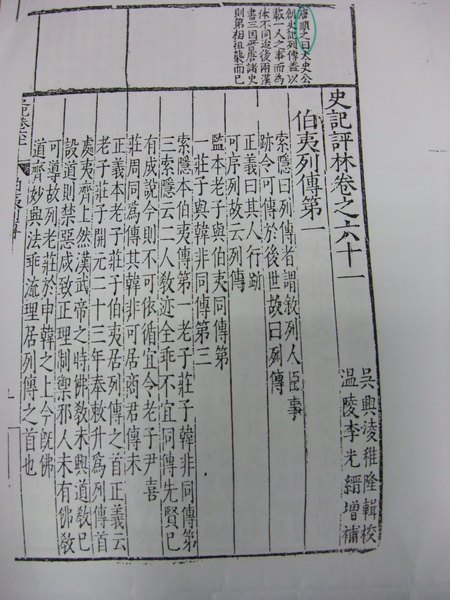 唐順之曰太史公
創史記列傳蓋以
載一人之事而為
体不同迨後兩漢
書三國晉唐諸史
則第相祖襲而已
史記評林卷之六十一
吳興凌稚隆輯校
溫陵李光縉增補
伯夷列傳第一
索隱曰列傳者謂敘列人臣事
跡令可傳於後世故曰列傳
正義曰其人行跡
可序列故云列傳
監本老子與伯夷同傳第
一莊子與韓非同傳第三
索隱本伯夷傳第一老子莊子韓非同傳第
三索隱云二人教迹全乖不宜同傳先賢已
有成說今則不可依循宜令老子尹喜
莊周同爲傳其韓非可居商君傳末
正義本老子莊子伯夷居列傳之首正義云
老子莊子開元二十三年奉敕升爲列傳首
處夷齊上然漢武帝之時佛教未興道教已
設道則禁惡咸致正理制禦邪人未有佛教
可導故列老莊於申韓之上今旣佛
道齊妙興法乖流理居列傳之首也